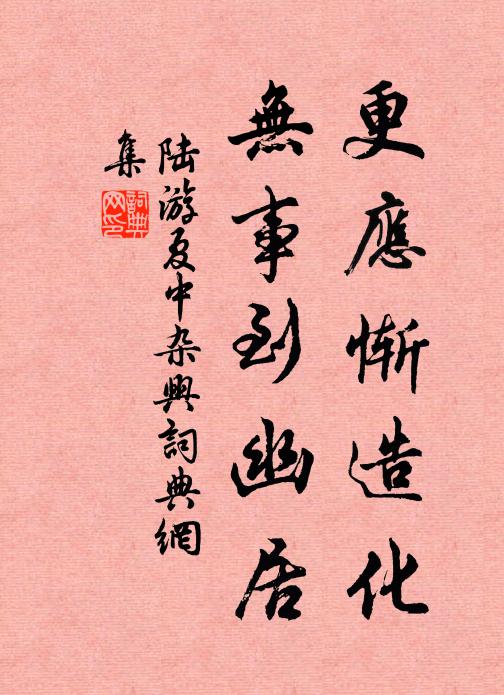 更應慚造化
無事到幽居
陸游夏中杂興詞典網
集
詞典
网印